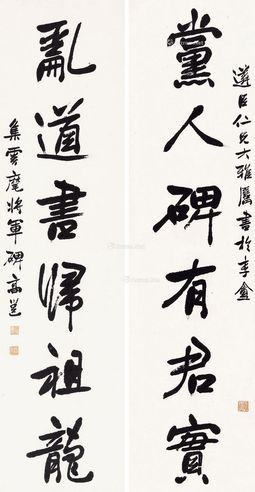 遵臣仁兄大雅屬書於李盦
黨人碑有君實
亂道書歸祖龍
集雲麾將軍碑 高邕